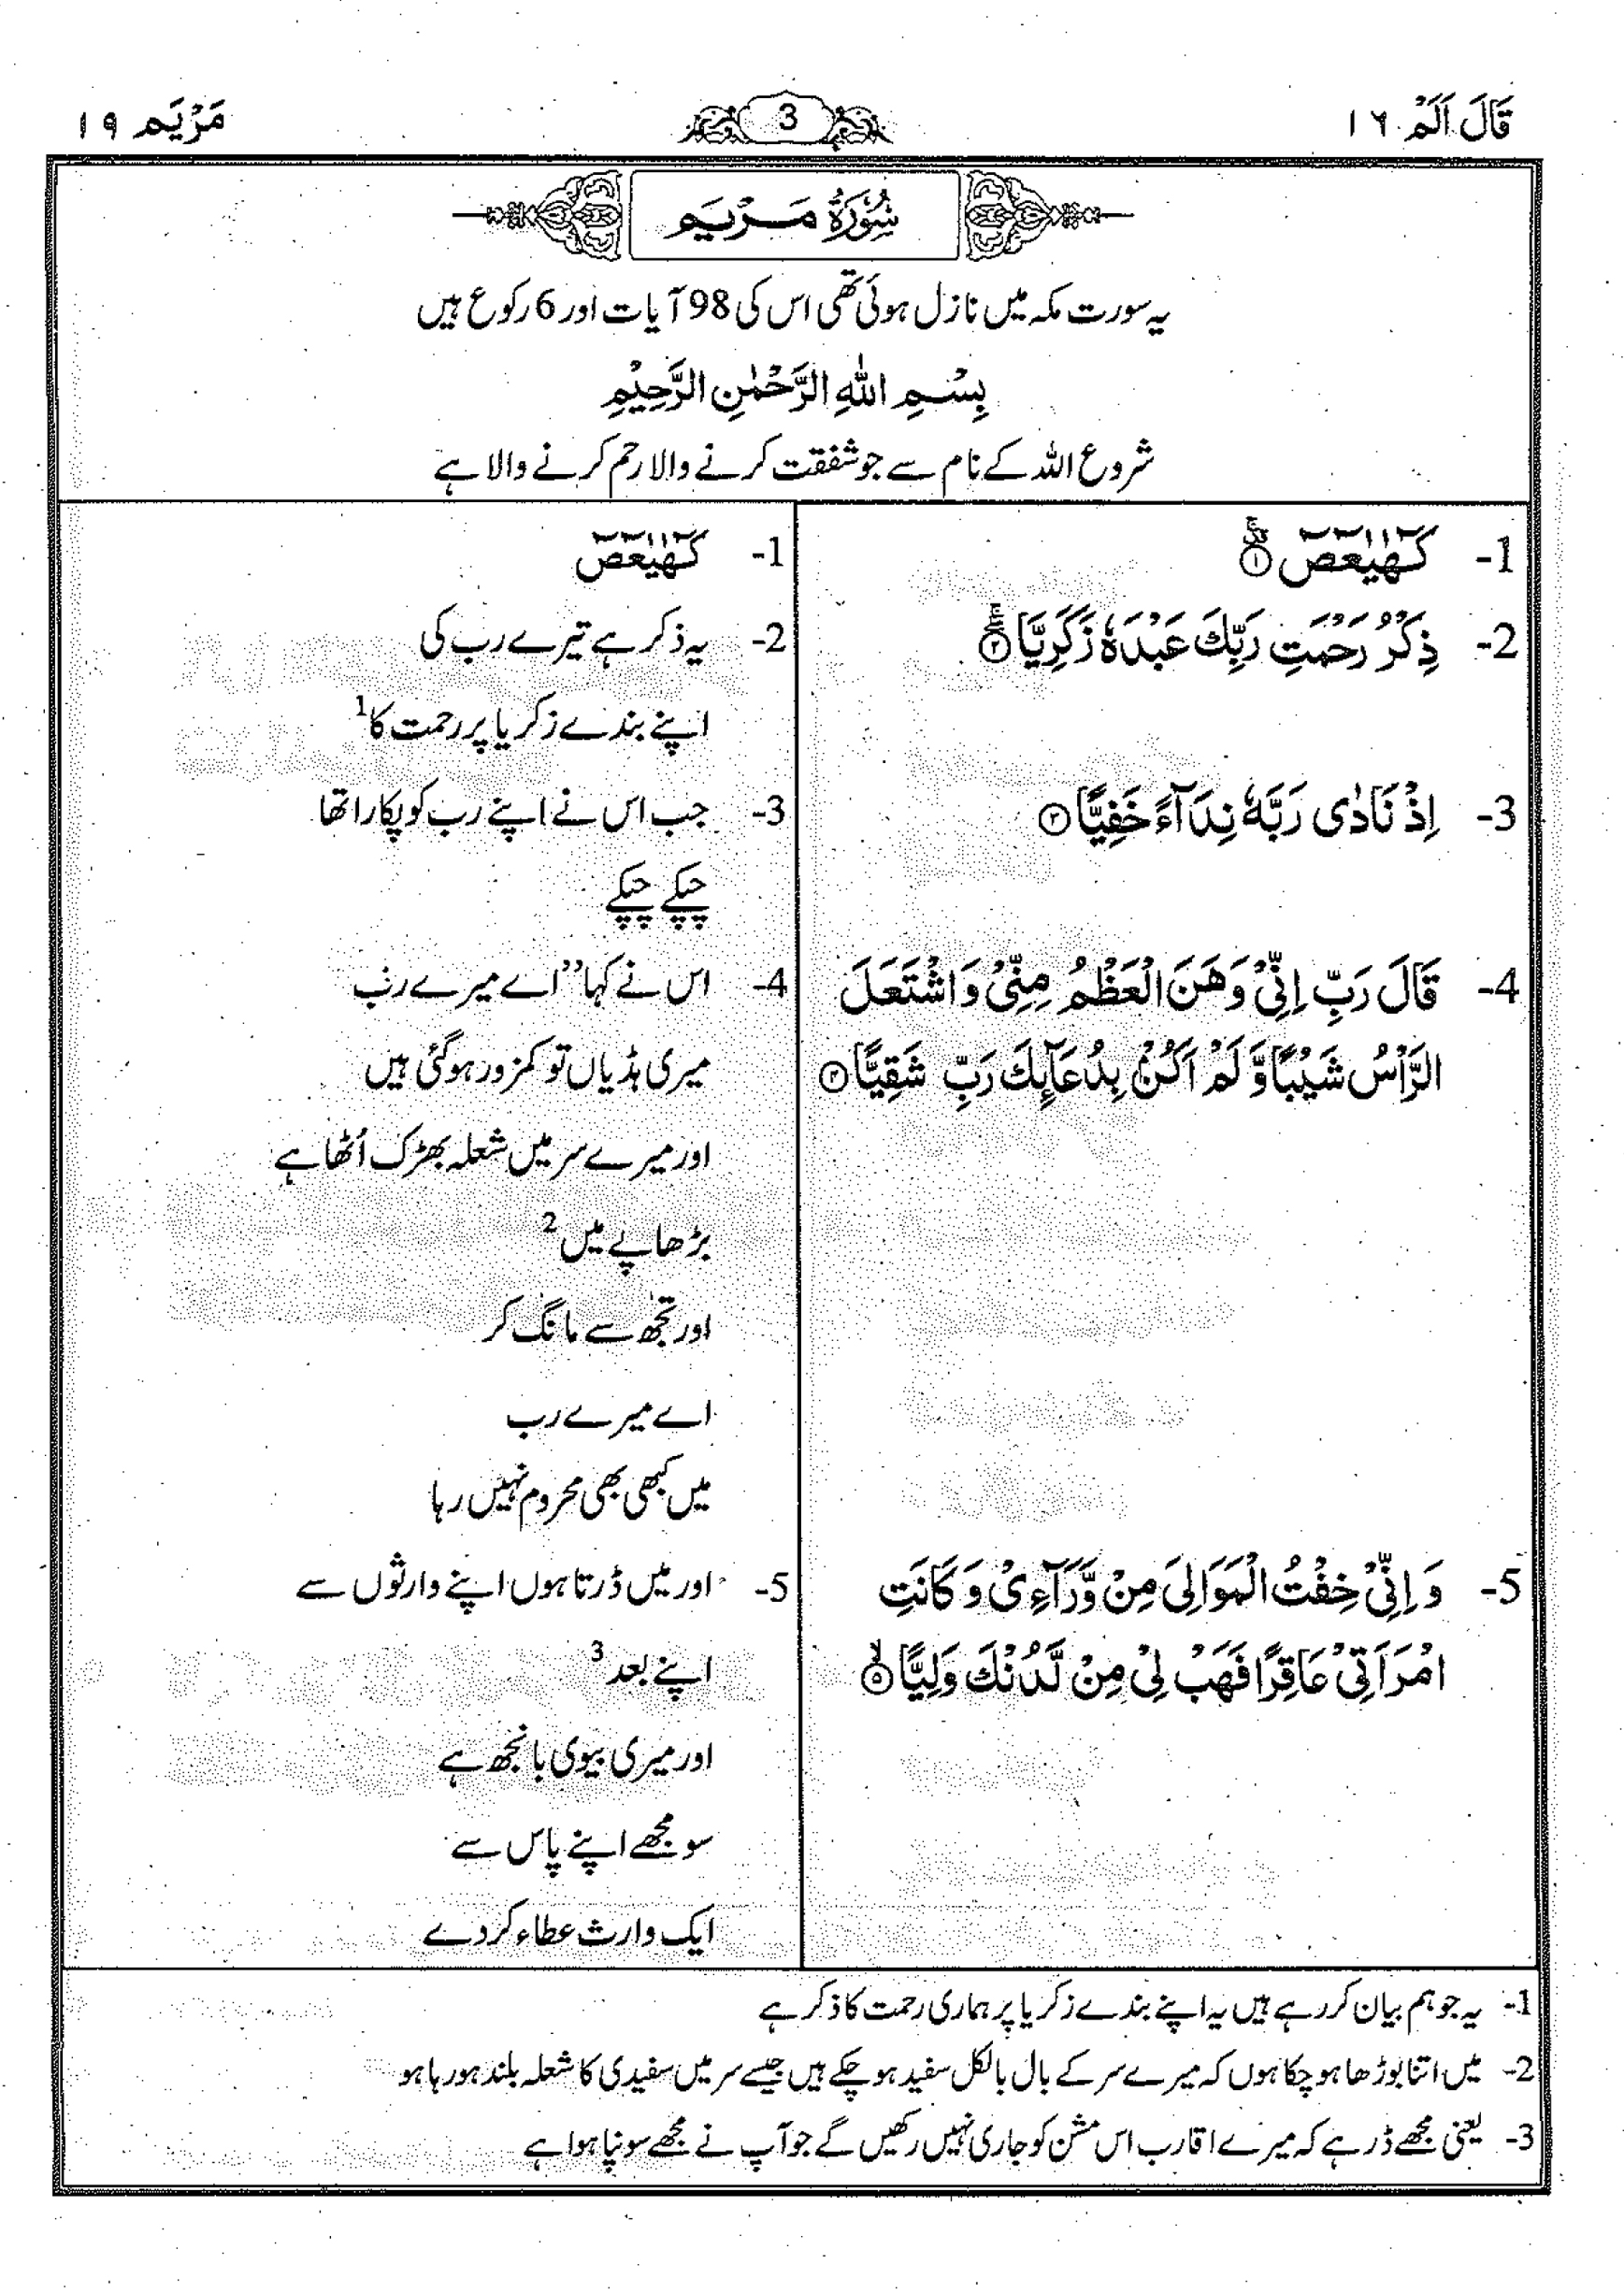 قَالَ اَلَمْ ١٦
3
مَرْيَم ١٩
سُوْرَةُ مَرْيَم
یہ سورت مکہ میں نازل ہوئی تھی اس کی 98 آیات اور 6 رکوع ہیں
بِسْمِ اللّٰهِ الرَّحْمٰنِ الرَّحِيْمِ
شروع اللہ کے نام سے جو شفقت کرنے والا رحم کرنے والا ہے
1- كٓهٰيٰعٓصٓ ۝١
2- ذِكْرُ رَحْمَتِ رَبِّكَ عَبْدَهٗ زَكَرِيَّا ۝٢
3- اِذْ نَادٰى رَبَّهٗ نِدَآءً خَفِيًّا ۝٣
4- قَالَ رَبِّ اِنِّيْ وَهَنَ الْعَظْمُ مِنِّيْ وَاشْتَعَلَ
الرَّاْسُ شَيْبًا وَّلَمْ اَكُنْ بِدُعَآئِكَ رَبِّ شَقِيًّا ۝٤
5- وَ اِنِّيْ خِفْتُ الْمَوَالِيَ مِنْ وَّرَآءِيْ وَ كَانَتِ
امْرَاَتِيْ عَاقِرًا فَهَبْ لِيْ مِنْ لَّدُنْكَ وَلِيًّا ۝٥
1- كٓهٰيٰعٓصٓ
2- یہ ذکر ہے تیرے رب کی
اپنے بندے زکریا پر رحمت کا 1
3- جب اس نے اپنے رب کو پکارا تھا
چپکے چپکے
4- اس نے کہا ”اے میرے رب
میری ہڈیاں تو کمزور ہوگئی ہیں
اور میرے سر میں شعلہ بھڑک اُٹھا ہے
بڑھاپے میں 2
اور تجھ سے مانگ کر
اے میرے رب
میں کبھی بھی محروم نہیں رہا
5- اور میں ڈرتا ہوں اپنے وارثوں سے
اپنے بعد 3
اور میری بیوی بانجھ ہے
سو مجھے اپنے پاس سے
ایک وارث عطاء کر دے
1- یہ جو ہم بیان کر رہے ہیں یہ اپنے بندے زکریا پر ہماری رحمت کا ذکر ہے
2- میں اتنا بوڑھا ہو چکا ہوں کہ میرے سر کے بال بالکل سفید ہو چکے ہیں جیسے سر میں سفیدی کا شعلہ بلند ہو رہا ہو
3- یعنی مجھے ڈر ہے کہ میرے اقارب اس مشن کو جاری نہیں رکھیں گے جو آپ نے مجھے سونپا ہوا ہے